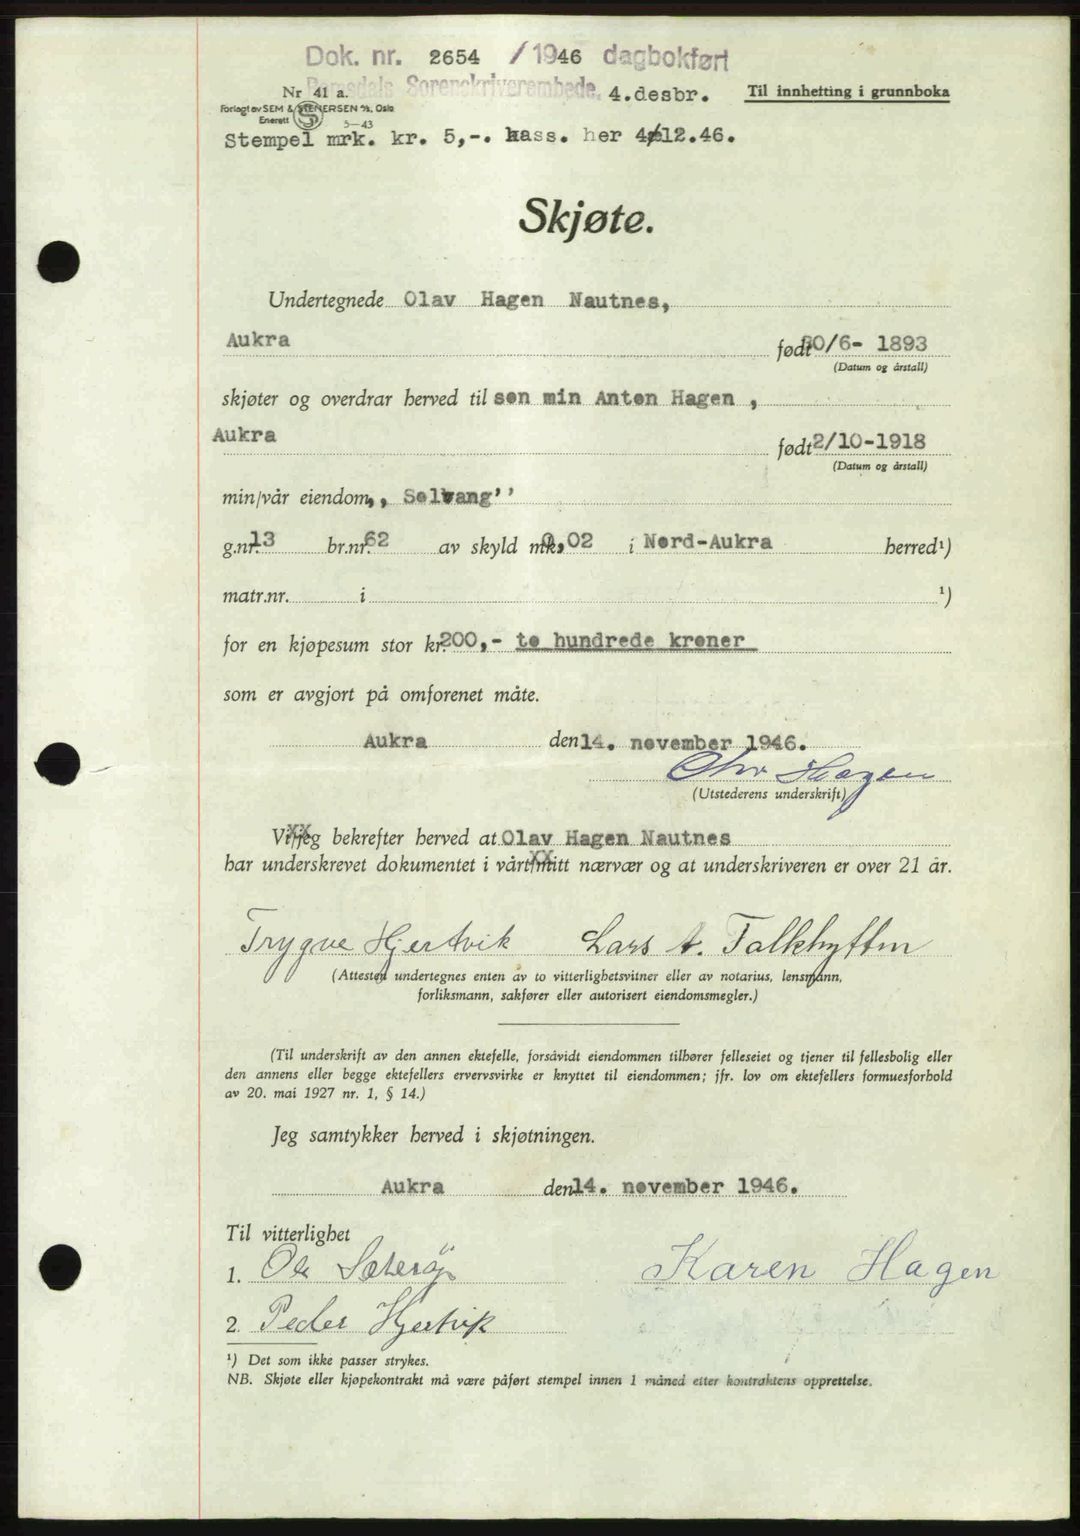 Dok. nr. 2654 / 1946 dagbokført
Nr 41 a. Romsdals Sorenskriverembede, 4.desbr. Til innhefting i grunnboka
Forlagt av SEM & STENERSEN A/S, Oslo
Enerett S 5—43
Stempel mrk. kr. 5,-. kass. her 4/12.46.
Skjøte.
Undertegnede Olav Hagen Nautnes,
Aukra født 30/6- 1893
(Datum og årstall)
skjøter og overdrar herved til søn min Anton Hagen ,
Aukra født 2/10-1918
(Datum og årstall)
min/vår eiendom ,, Solvang''
g.nr. 13 br.nr. 62 av skyld mk. 0,02 i Nord-Aukra herred¹)
matr.nr. i ¹)
for en kjøpesum stor kr. 200,- to hundrede kroner
som er avgjort på omforenet måte.
Aukra den 14. november 1946.
Olav Hagen
(Utstederens underskrift)
Vi/jeg bekrefter herved at Olav Hagen Nautnes
har underskrevet dokumentet i vårt/mitt nærvær og at underskriveren er over 21 år.
Trygve Hjertvik Lars A. Falkhytten
(Attesten undertegnes enten av to vitterlighetsvitner eller av notarius, lensmann,
forliksmann, sakfører eller autorisert eiendomsmegler.)
(Til underskrift av den annen ektefelle, forsåvidt eiendommen tilhører felleseiet og tjener til fellesbolig eller
den annens eller begge ektefellers ervervsvirke er knyttet til eiendommen; jfr. lov om ektefellers formuesforhold
av 20. mai 1927 nr. 1, § 14.)
Jeg samtykker herved i skjøtningen.
Aukra den 14. november 1946.
Til vitterlighet
1. Ole Karen Hagen
2. Peder Hjertvik
¹) Det som ikke passer strykes.
NB. Skjøte eller kjøpekontrakt må være påført stempel innen 1 måned etter kontraktens opprettelse.